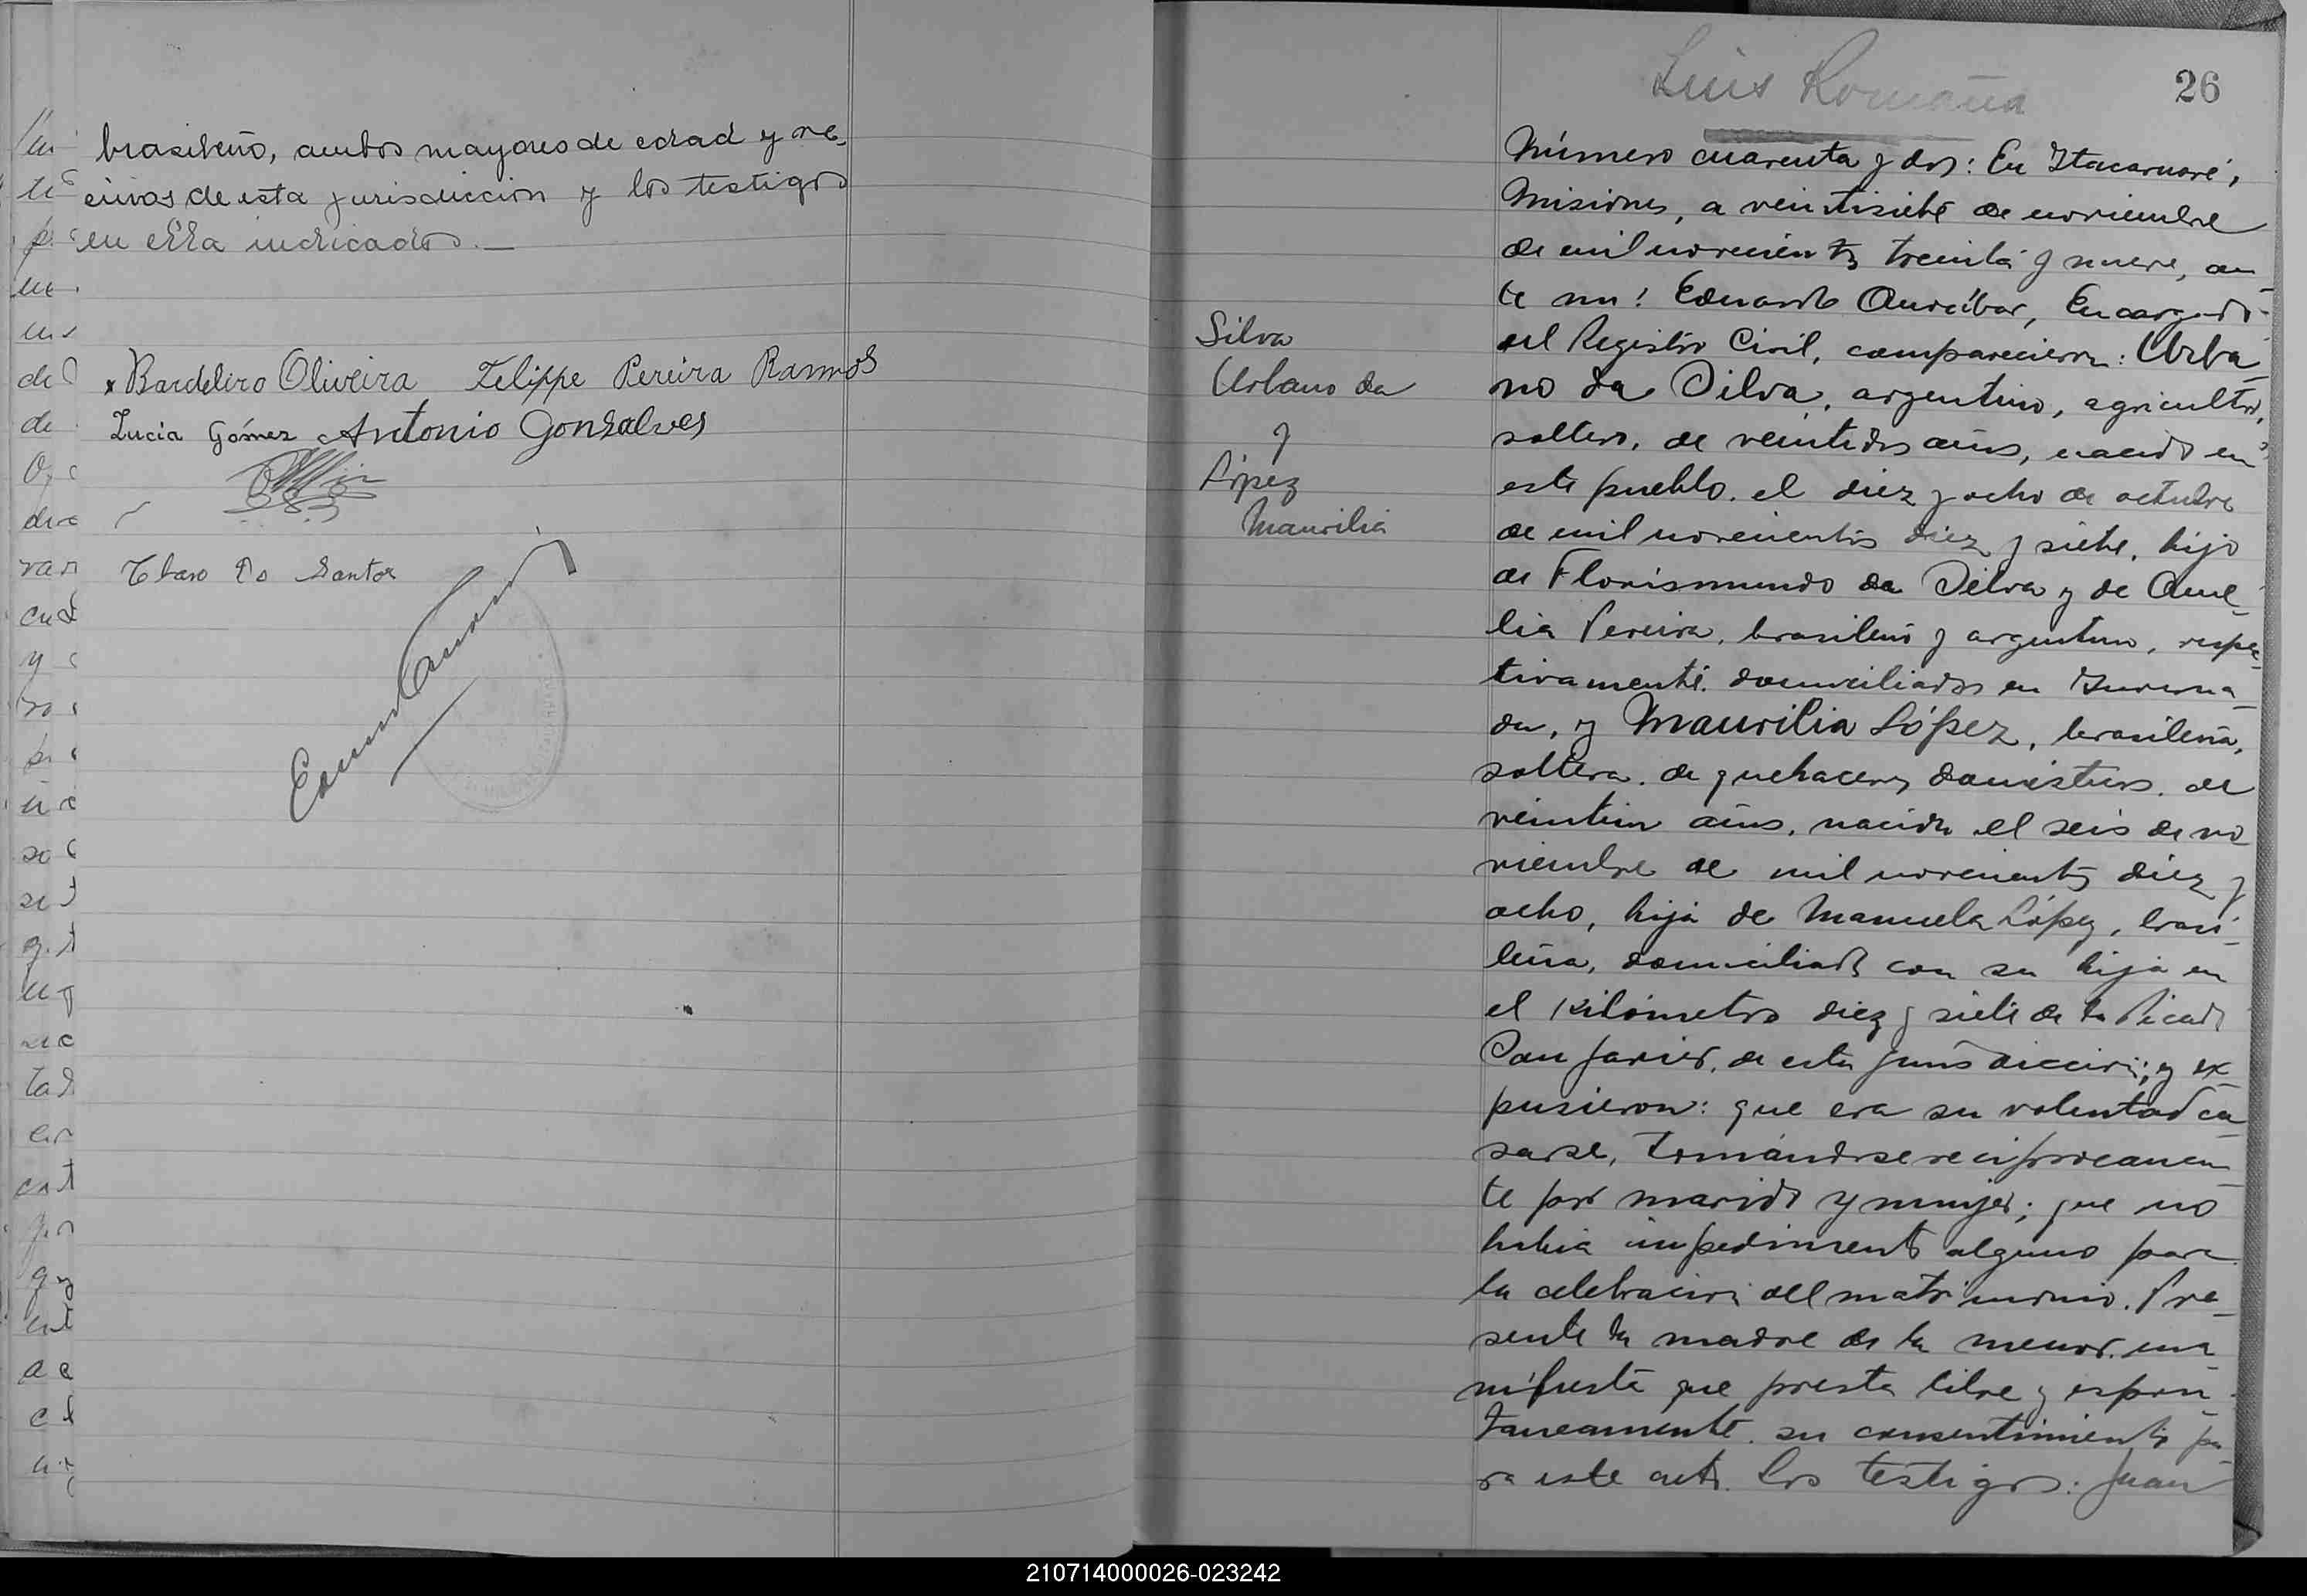 brasileño, ambos mayores de edad y ve-
cinos de esta jurisdiccion y los testigos
en ella indicados.—
x Bardeliro Oliveira Felippe Pereira Ramos
Lucia Gómez Antonio Gonsalves
do Santos
Luis Romaña
26
Número cuarenta y dos: En Itacaruaré,
Misiones, a veintisiete de noviembre
de mil novecientos treinta y nueve, an-
te mi: Eduardo Encargado
del Registro Civil, comparecieron: Urba-
no da Silva, argentino, agricultor,
soltero, de veintidos años, nacido en
este pueblo, el diez y ocho de octubre
de mil novecientos diez y siete, hijo
de Florismundo da Silva y de Ame-
lia Pereira, brasileño y argentina, respec-
tivamente, domiciliados en Inverna-
da, y Maurilia López, brasileña,
soltera, de quehaceres domésticos, de
veintiun años, nacida el seis de no-
viembre de mil novecientos diez y
ocho, hija de Manuela López, brasi-
leña, domiciliada con su hija en
el kilómetro diez y siete de la Picada
San Javier, de esta jurisdiccion; y ex-
pusieron: que era su voluntad ca-
sarse, tomándose reciprocamen-
te por marido y mujer; que no
habia impedimento alguno para
la celebracion del matrimonio. Pre-
sente la madre de la menor, ma-
nifiesta que presta libre y espon-
taneamente su consentimiento pa-
ra este acto. Los testigos: Juan
Silva
Urbano da
y
López
Maurilia
210714000026-023242